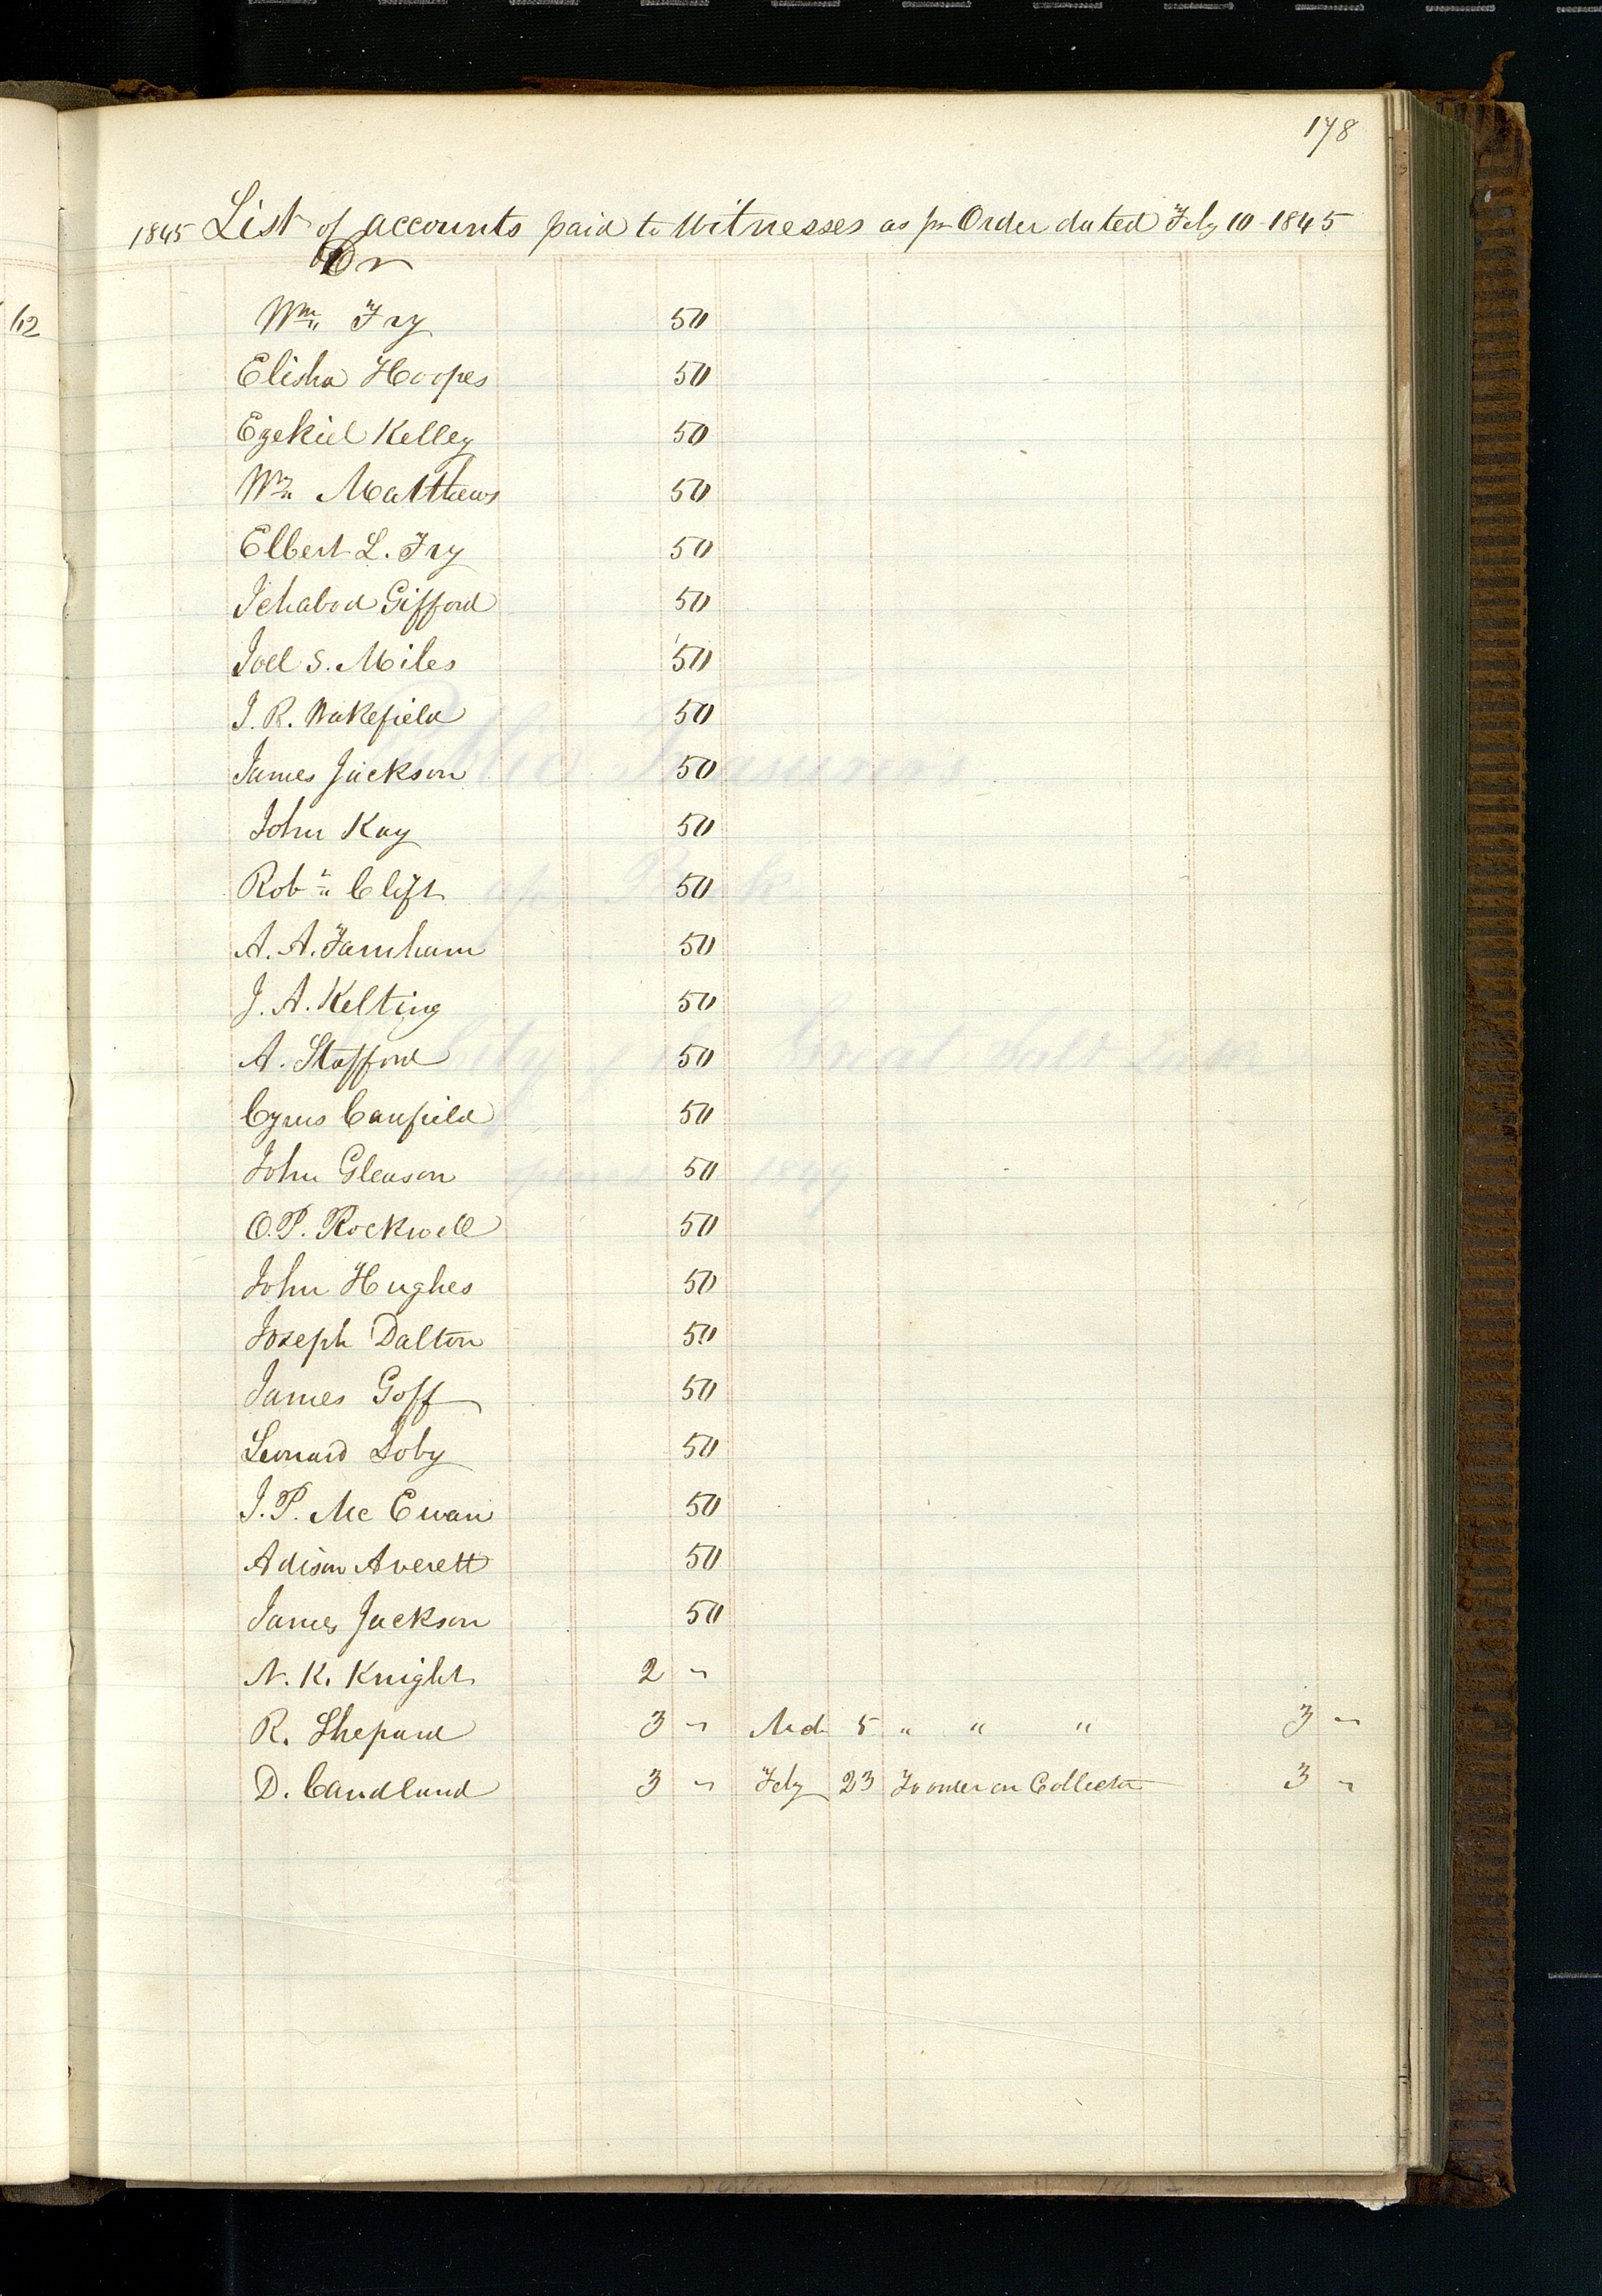 178
1845 List of accounts paid to Witnesses as pr Order dated Feby 10 - 1845
Dr
62
Wm Fry 50
Elisha Hoopes 50
Ezekiel Kelley 50
Wm Matthews 50
Elbert L. Fry 50
Ichabod Gifford 50
Joel S. Miles 50
J. R. Wakefield 50
James Jackson 50
John Kay 50
Robt Clift 50
A. A. Farnham 50
J. A. Kelting 50
A. Stafford 50
Cyrus Canfield 50
John Gleason 50
O. P. Rockwell 50
John Hughes 50
Joseph Dalton 50
James Goff 50
Leonard Soby 50
J. P. Mc Ewan 50
Adison Averett 50
James Jackson 50
N. K. Knight 2 "
R. Shepard 3 " Mch 5 " " " 3 "
D. Candland 3 " Feby 23 To order on Collector 3 "